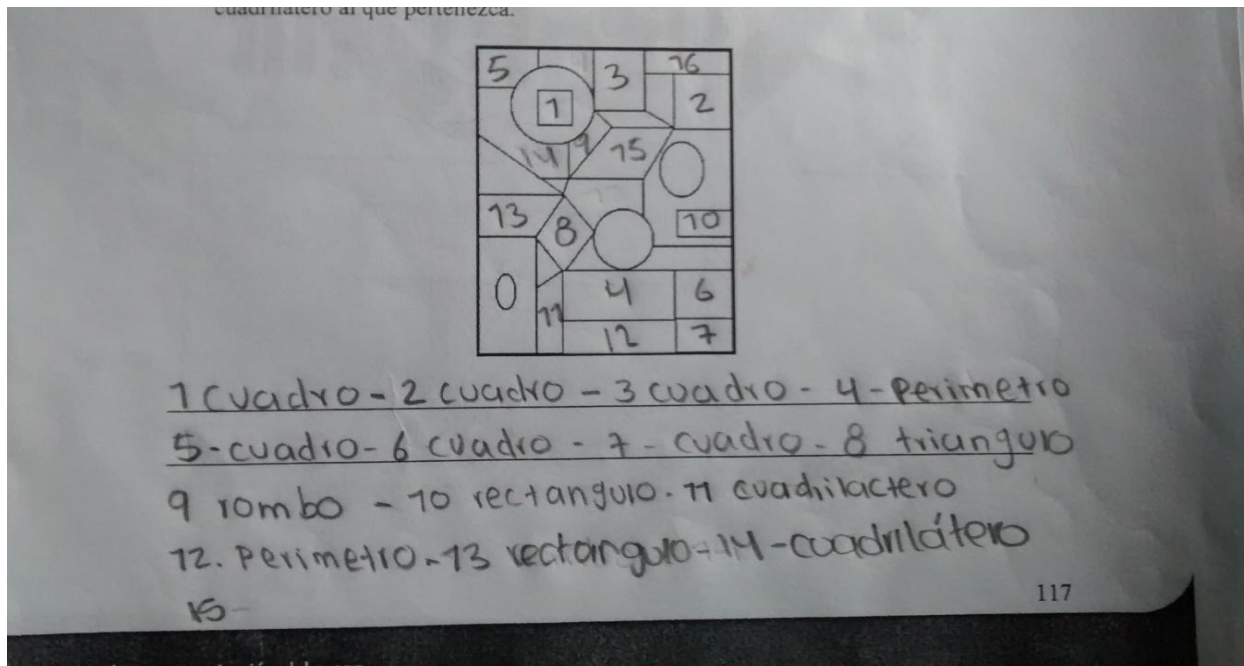 cuadrilátero al que pertenezca.
5 3 16
1 2
14 9 15
13 8 10
4 6
11 12 7
1 cuadro - 2 cuadro - 3 cuadro - 4 - Perimetro
5 - cuadro - 6 cuadro - 7 - cuadro - 8 triangulo
9 rombo - 10 rectangulo. 11 cuadrilactero
12. Perimetro - 13 rectangulo - 14 - cuadrilátero
15 -
117